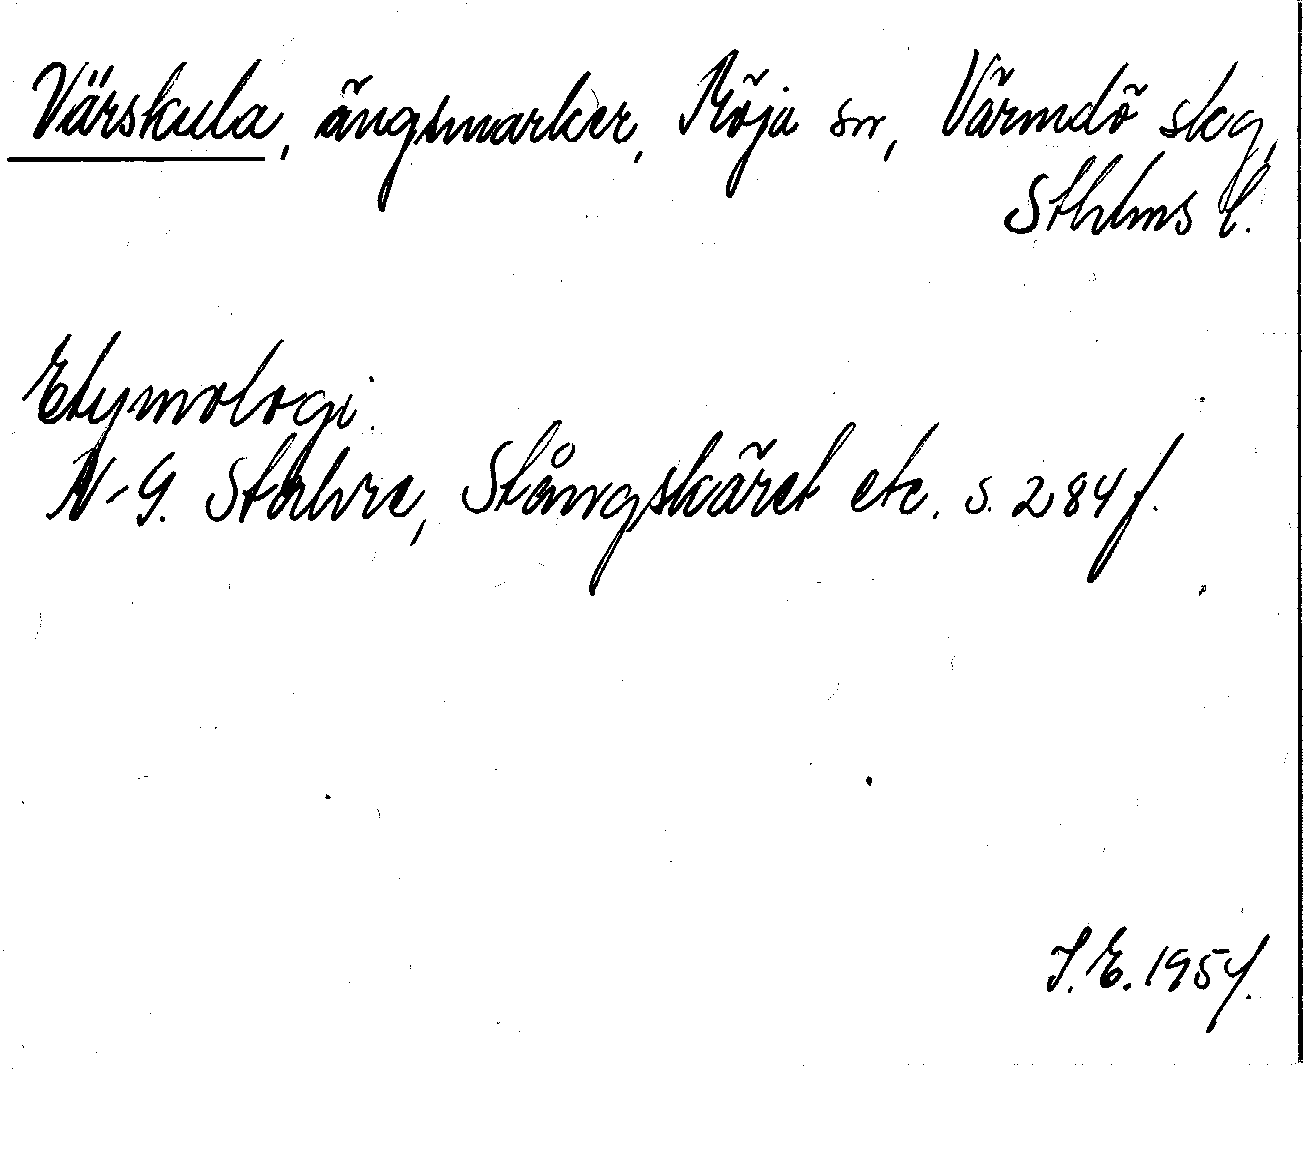 Värskula, ängsmarker, Möja sn, Värmdö skg,
Sthlms l.
Etymologi.
N-G. Stahre, Stångskäret etc. s. 284 f.
I. E. 1954.